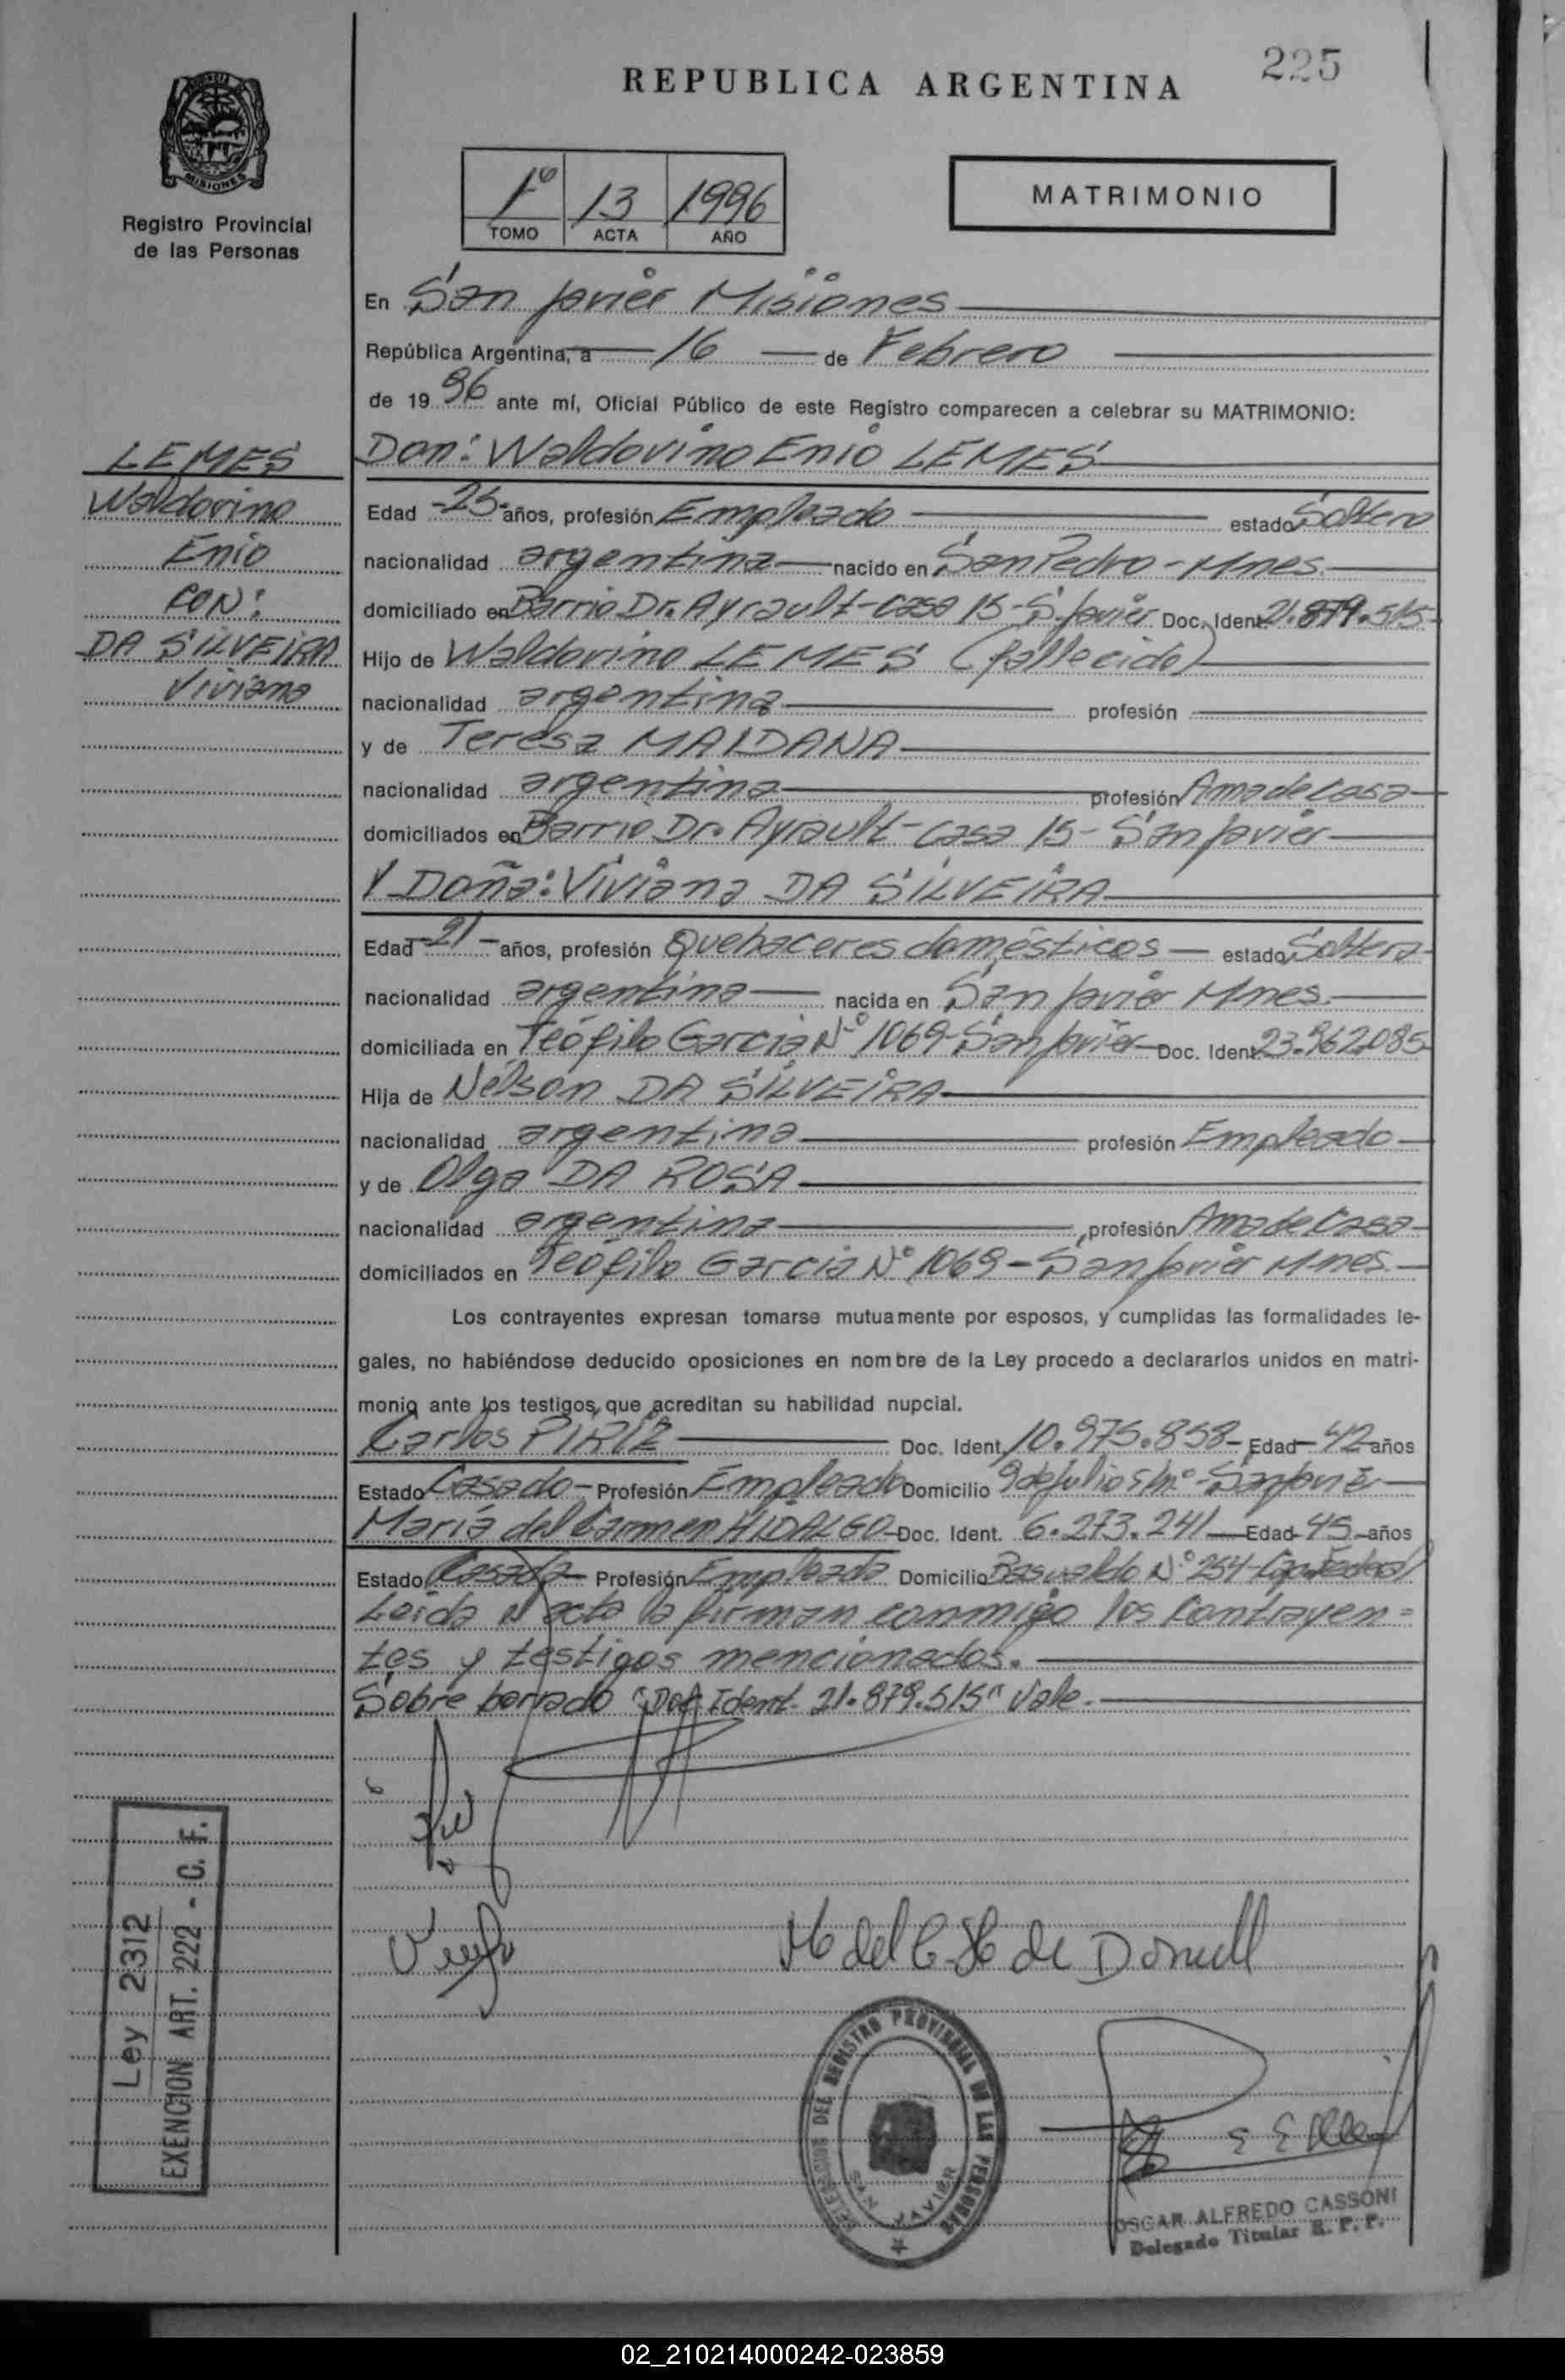 225
REPUBLICA ARGENTINA
MISIONES
Registro Provincial
de las Personas
1º 13 1996
TOMO ACTA AÑO
MATRIMONIO
En San Javier Misiones
República Argentina, a 16 de Febrero
de 19 96 ante mí, Oficial Público de este Registro comparecen a celebrar su MATRIMONIO:
LEMES
Waldovino
Enio
CON:
DA SILVEIRA
Viviana
Don: Waldovino Enio LEMES
Edad -25- años, profesión Empleado estado Soltero
nacionalidad argentina nacido en San Pedro - Mnes.
domiciliado en Barrio Dr. Ayrault - casa 15 - S. Javier. Doc. Ident. 21.879.515
Hijo de Waldovino LEMES (fallecido)
nacionalidad argentina profesión
y de Teresa MAIDANA
nacionalidad argentina profesión Ama de Casa
domiciliados en Barrio Dr. Ayrault - casa 15 - San Javier
Y Doña: Viviana DA SILVEIRA
Edad -21- años, profesión Quehaceres domésticos estado Soltera
nacionalidad argentina nacida en San Javier Mnes.
domiciliada en Teófilo García Nº 1069 - San Javier Doc. Ident. 23.962.085
Hija de Nelson DA SILVEIRA
nacionalidad argentina profesión Empleado
y de Olga DA ROSA
nacionalidad argentina profesión Ama de Casa
domiciliados en Teófilo García Nº 1069 - San Javier Mnes.
Los contrayentes expresan tomarse mutuamente por esposos, y cumplidas las formalidades le-
gales, no habiéndose deducido oposiciones en nombre de la Ley procedo a declararlos unidos en matri-
monio ante los testigos, que acreditan su habilidad nupcial.
Carlos PIRIZ Doc. Ident. 10.975.858 - Edad 42 años
Estado Casado - Profesión Empleado Domicilio 9 de Julio s/nº - San Javier
María del Carmen HIDALGO Doc. Ident. 6.273.241 Edad 45 años
Estado Casada Profesión Empleada Domicilio Basualdo Nº 254 - Cap. Federal
Leída el acta la firman conmigo los Contrayen=
tes y testigos mencionados.
Sobre borrado "Doc. Ident. 21.879.515" Vale.
M del C H de
Ley 2312
EXENCION ART. 222 - C. F.
DELEGACION DEL REGISTRO PROVINCIAL DE LAS PERSONAS
SAN JAVIER
OSCAR ALFREDO CASSONI
Delegado Titular R. P. P.
02_210214000242-023859